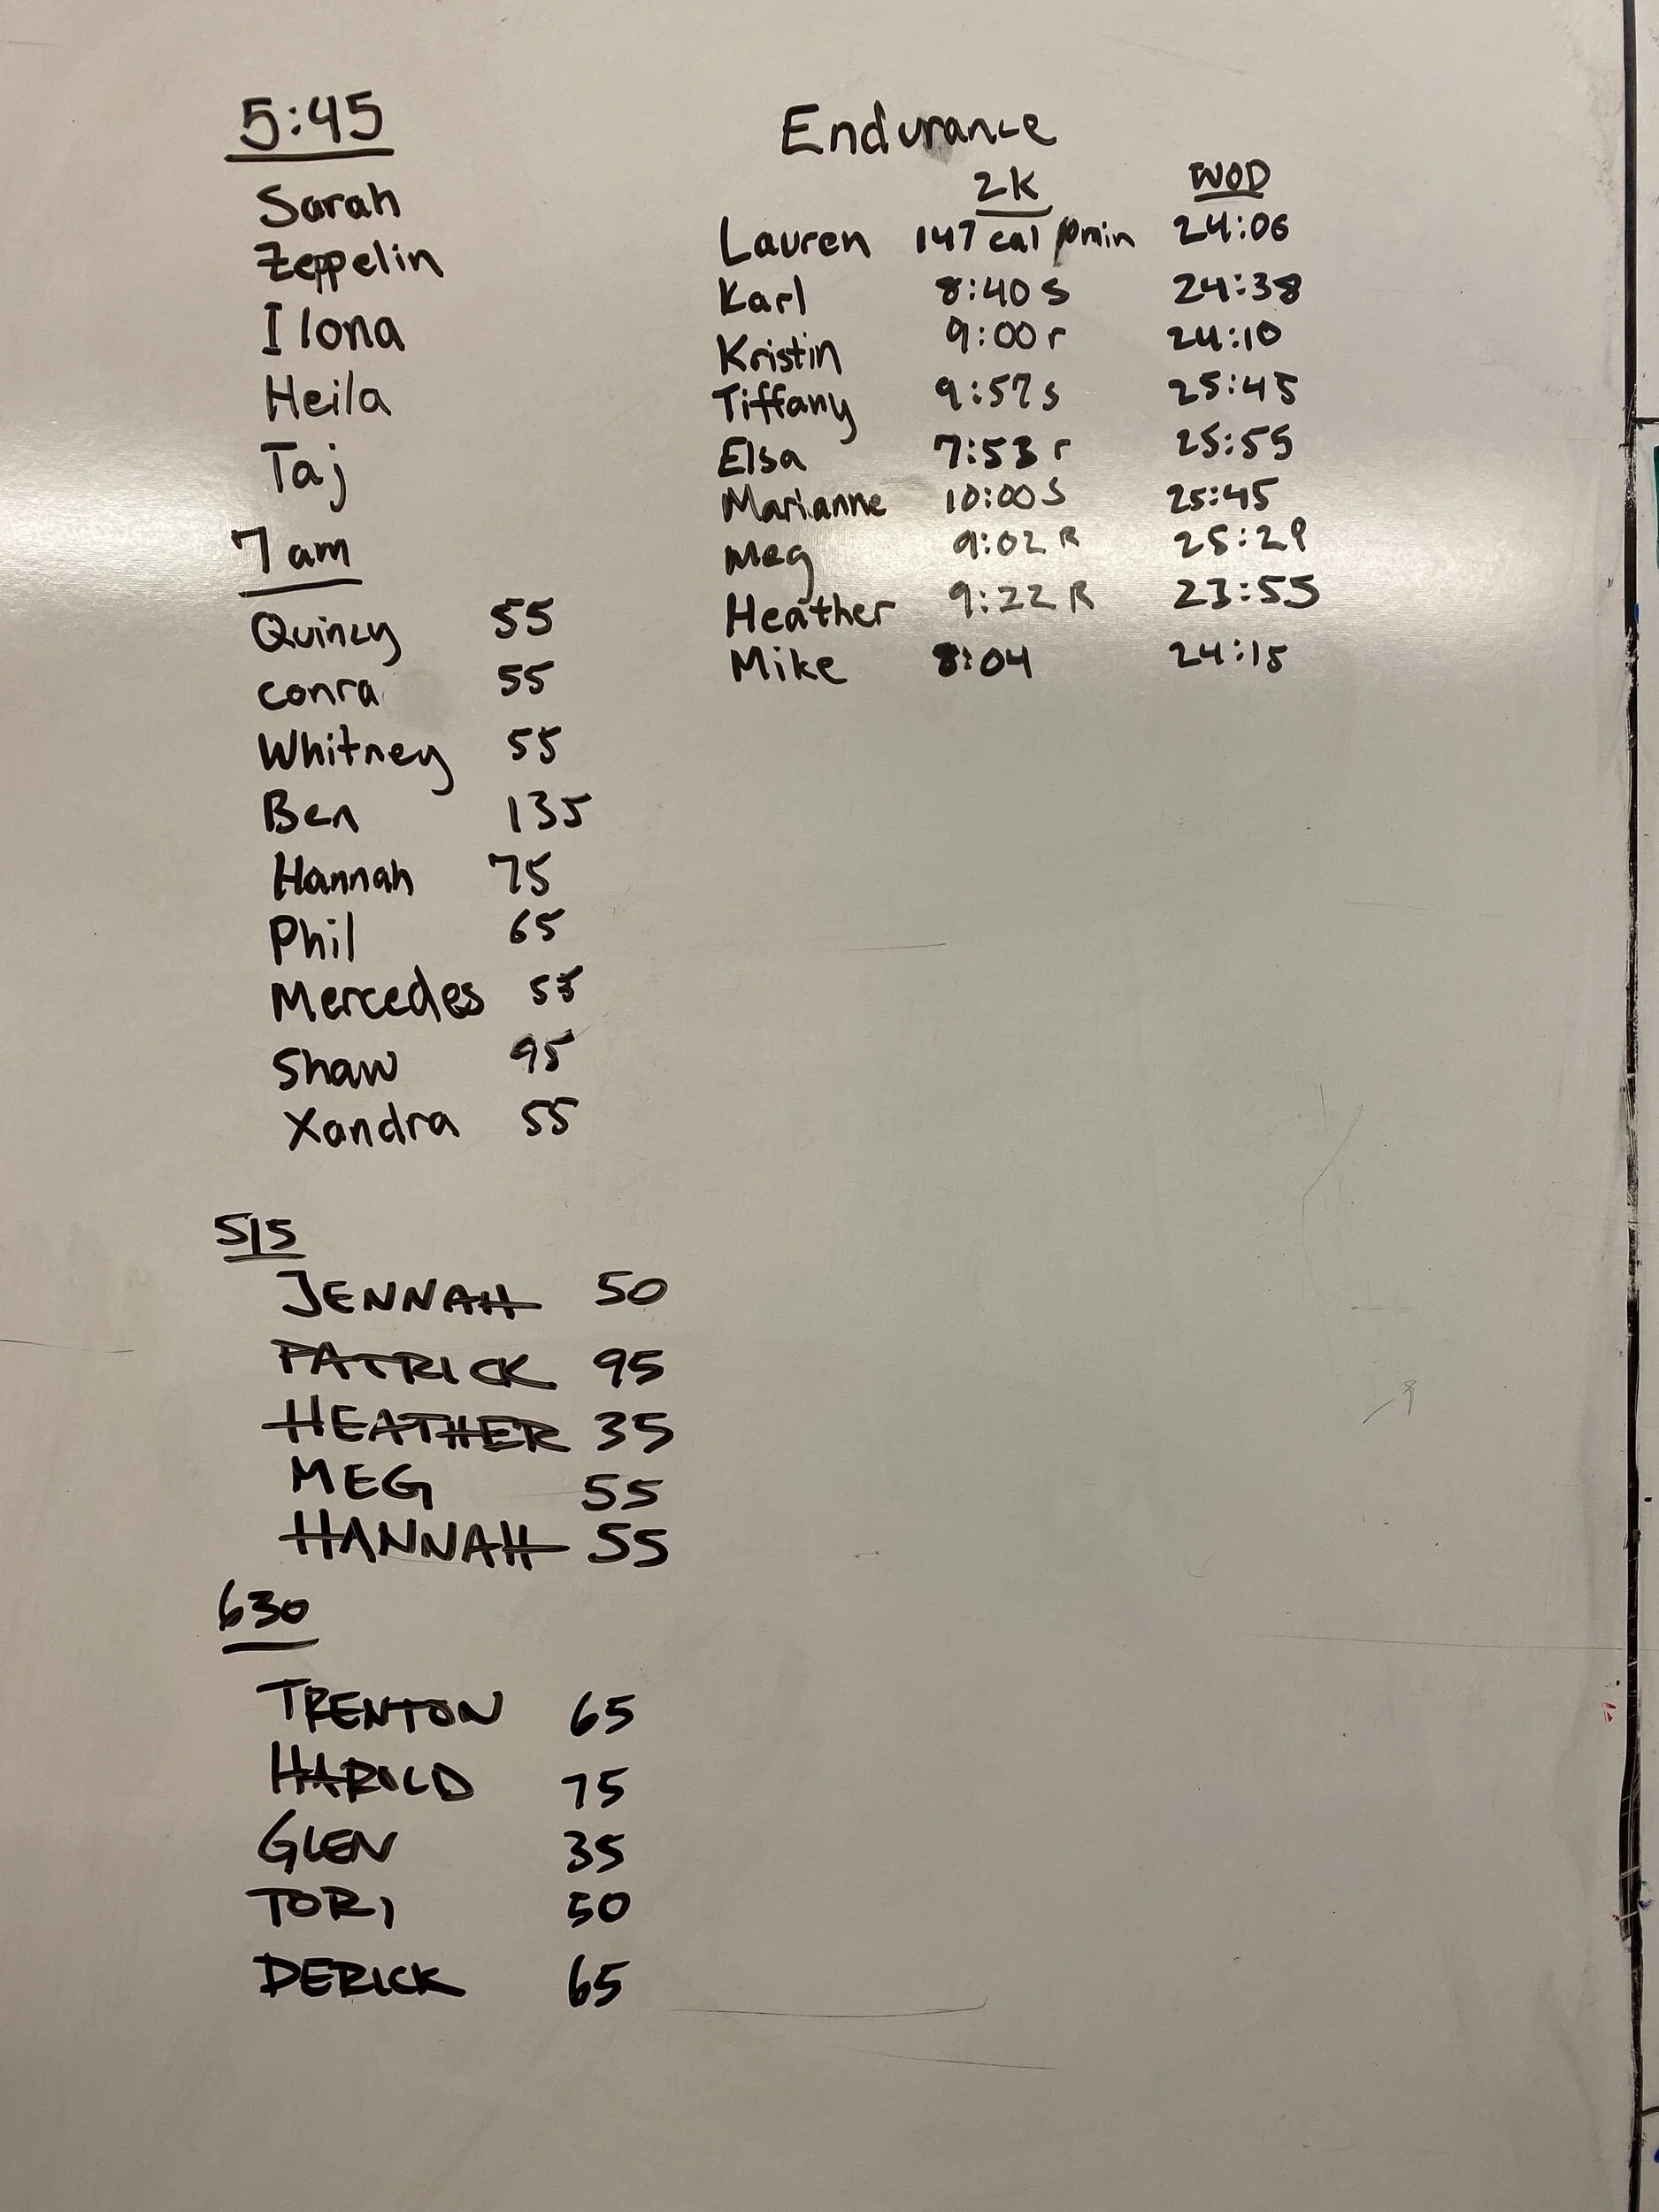 5:45
Sarah
Zeppelin
Ilona
Heila
Taj
7 am
Quincy 55
conra 55
Whitney 55
Ben 135
Hannah 75
Phil 65
Mercedes 55
Shaw 95
Xandra 55
515
JENNAH 50
PATRICK 95
HEATHER 35
MEG 55
HANNAH 55
630
TRENTON 65
HAROLD 75
GLEN 35
TORI 50
DERICK 65
Endurance
2K WOD
Lauren 147 cal 24:06
Karl 8:40 s 24:38
Kristin 9:00 r 24:10
Tiffany 9:57 s 25:45
Elsa 7:53 r 25:55
Marianne 10:00 S 25:45
Meg 9:02 R
Heather 9:22 R 23:55
Mike 8:04 24:15